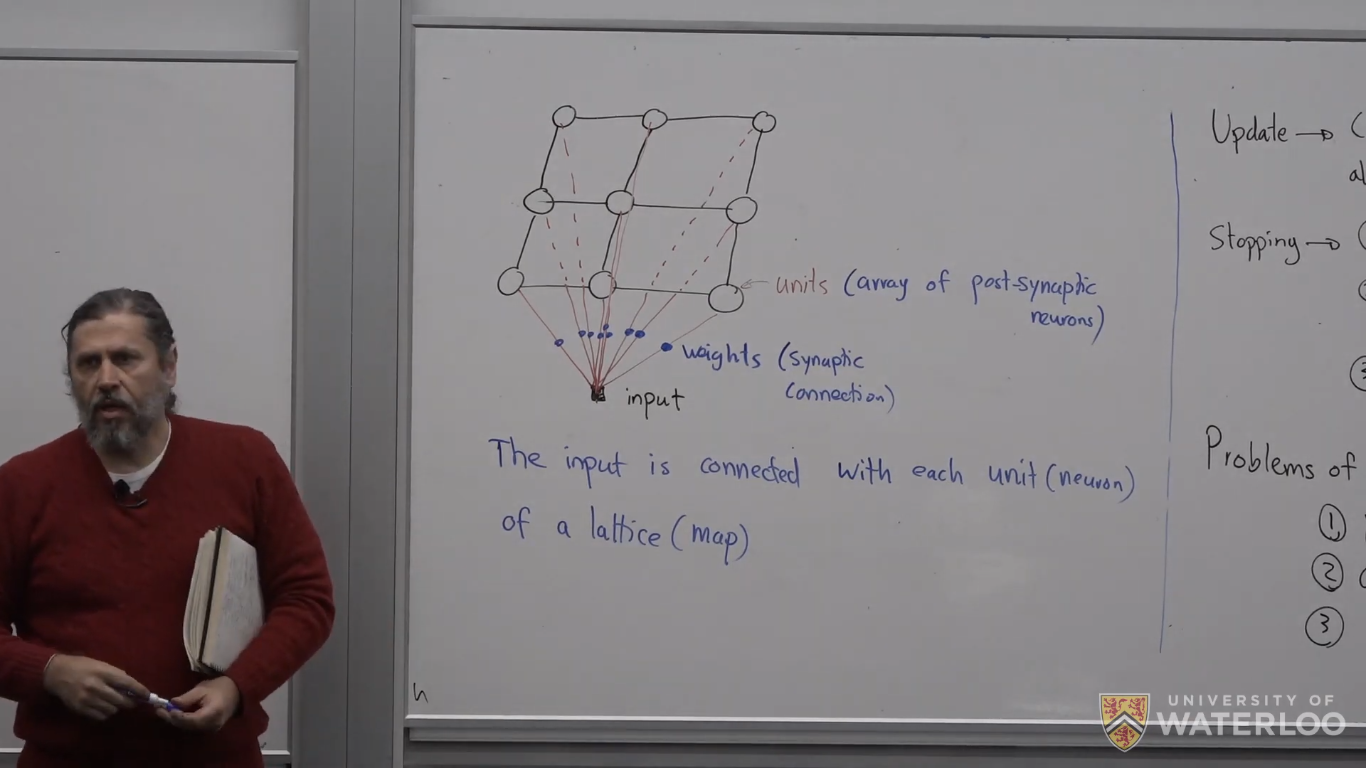 units (array of post-synaptic
neurons)
weights (synaptic
connection)
input
The input is connected with each unit (neuron)
of a lattice (map)
Update →
Stopping →
Problems of
①
②
③
UNIVERSITY OF
WATERLOO